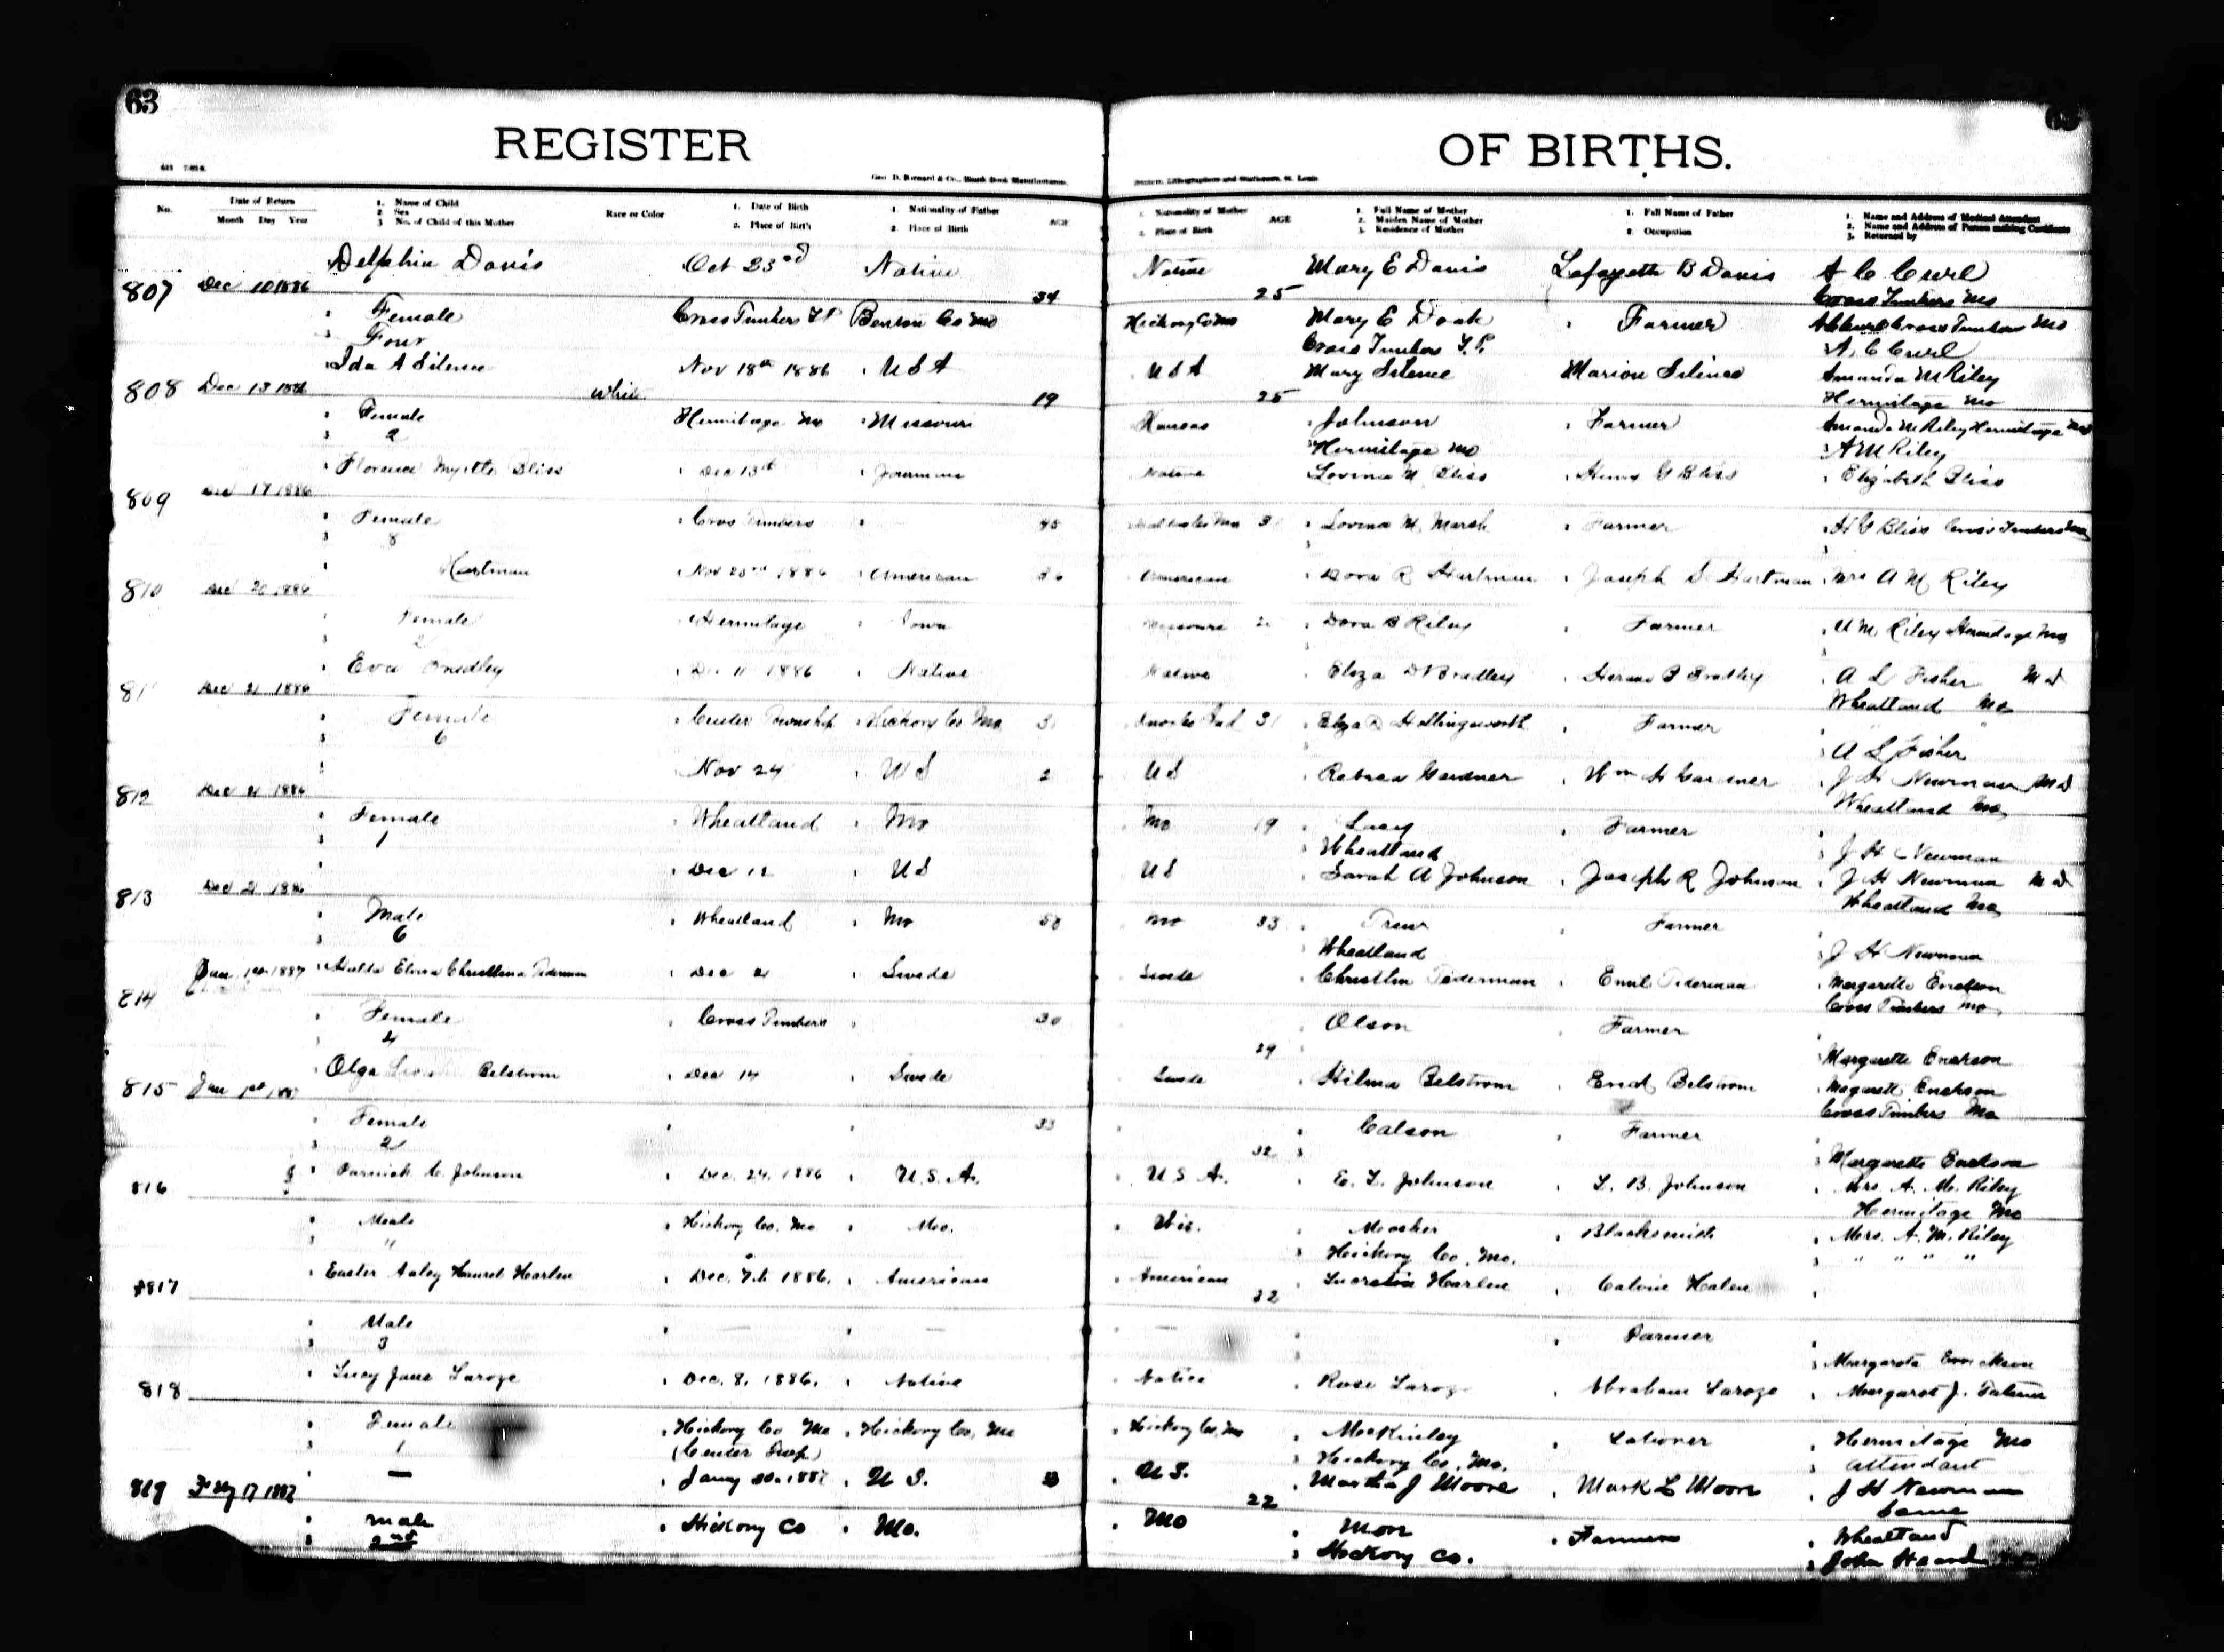 63
REGISTER
OF BIRTHS.
No.
Date of Return
Month Day Year
1. Name of Child
2. Sex
3. No. of Child of this Mother
Race or Color
1. Date of Birth
2. Place of Birth
1. Nationality of Father
2. Place of Birth
AGE
1. Nationality of Mother
2. Place of Birth
AGE
1. Full Name of Mother
2. Maiden Name of Mother
3. Residence of Mother
1. Full Name of Father
2. Occupation
1. Name and Address of Medical Attendant
2. Name and Address of Person making Certificate
3. Returned by
807 Dec 10 1886 Delphia Davis Oct 23rd Native 34 Native 25 Mary E Davis Lafayette B Davis A C Curl
Cross Timbers Mo
Female Cross Timbers T.P. Benton Co Mo Hickory Co Mo Mary E Doak Farmer A C Curl Cross Timbers Mo
Four Cross Timbers T.P. A. C Curl
808 Dec 13 1886 Ida A Silence White Nov 18th 1886 U S A 19 U S A 25 Mary Silence Marion Silence Amanda M Riley
Hermitage Mo
Female Hermitage Mo Missouri Kansas Johnson Farmer Amanda M Riley Hermitage Mo
2 Hermitage Mo A M Riley
809 Dec 17 1886 Florence Myrtle Bliss Dec 13th Native Lovina M Bliss Henry G Bliss Elizabeth Bliss
Female Cross Timbers 45 Lovina M. Marsh Farmer H G Bliss Cross Timbers Mo
8
810 Dec 20 1886 Hartman Nov 23rd 1886 American 26 American Dora B Hartman Joseph S Hartman Mrs A M Riley
Female Hermitage Iowa Missouri Dora B Riley Farmer A M Riley Hermitage Mo
2
811 Dec 21 1886 Eva Bradley Dec 11 1886 Native Native Eliza D Bradley Hiram B Bradley A L Fisher M D
Wheatland Mo
Female Center Township Hickory Co Mo 31 Eliza D Hollingsworth Farmer
6 A L Fisher
812 Dec 21 1886 Nov 24 U S U S Wm H Gardner J H Newman M D
Wheatland Mo
Female Wheatland Mo Mo 19 Lacy Farmer
1 Wheatland J H Newman
813 Dec 21 1886 Dec 12 U S U S Sarah A Johnson Joseph R Johnson J H Newman M D
Wheatland Mo
Male Wheatland Mo 50 Mo 33 Farmer
6 Wheatland J H Newman
814 Jan 1st 1887 Christina Tiderman Dec 21 Swede Swede Tiderman Emil Tiderman Margarette Erickson
Cross Timbers Mo
Female Cross Timbers 30 29 Olson Farmer
4 Margarette Erickson
815 Jan 1st 1887 Olga Belstrom Dec 14 Swede Swede Hilma Belstrom Belstrom Margarett Erickson
Cross Timbers Mo
Female 33 32 Calson Farmer
2 Margarette Erickson
816 C. Johnson Dec. 24. 1886 U. S. A. U. S. A. E. L. Johnson L. B. Johnson Mrs. A. M. Riley
Hermitage Mo
Male Hickory Co. Mo Mo. Wis. Mosher Blacksmith Mrs. A. M. Riley
" Hickory Co. Mo. " " " "
817 Easter Harlen Dec. 7th 1886. American American 32 Harlen Calvin Halen
Male — — — Farmer
3 Margareta Errickson
818 Lucy Jane Laroze Dec. 8. 1886. Native Native Rose Laroze Abraham Laroze Margaret J.
Female Hickory Co Mo Hickory Co, Mo Hickory Co, Mo McKinley Laborer Hermitage Mo
1 (Center Twp) Hickory Co. Mo. attendant
819 17 1887 — Jany 1887 U S. U S. 22 Martha J Moore Mark L Moore J H Newman
Same
Male Hickory Co Mo. Mo Farmer Wheatland
2nd Hickory Co. John